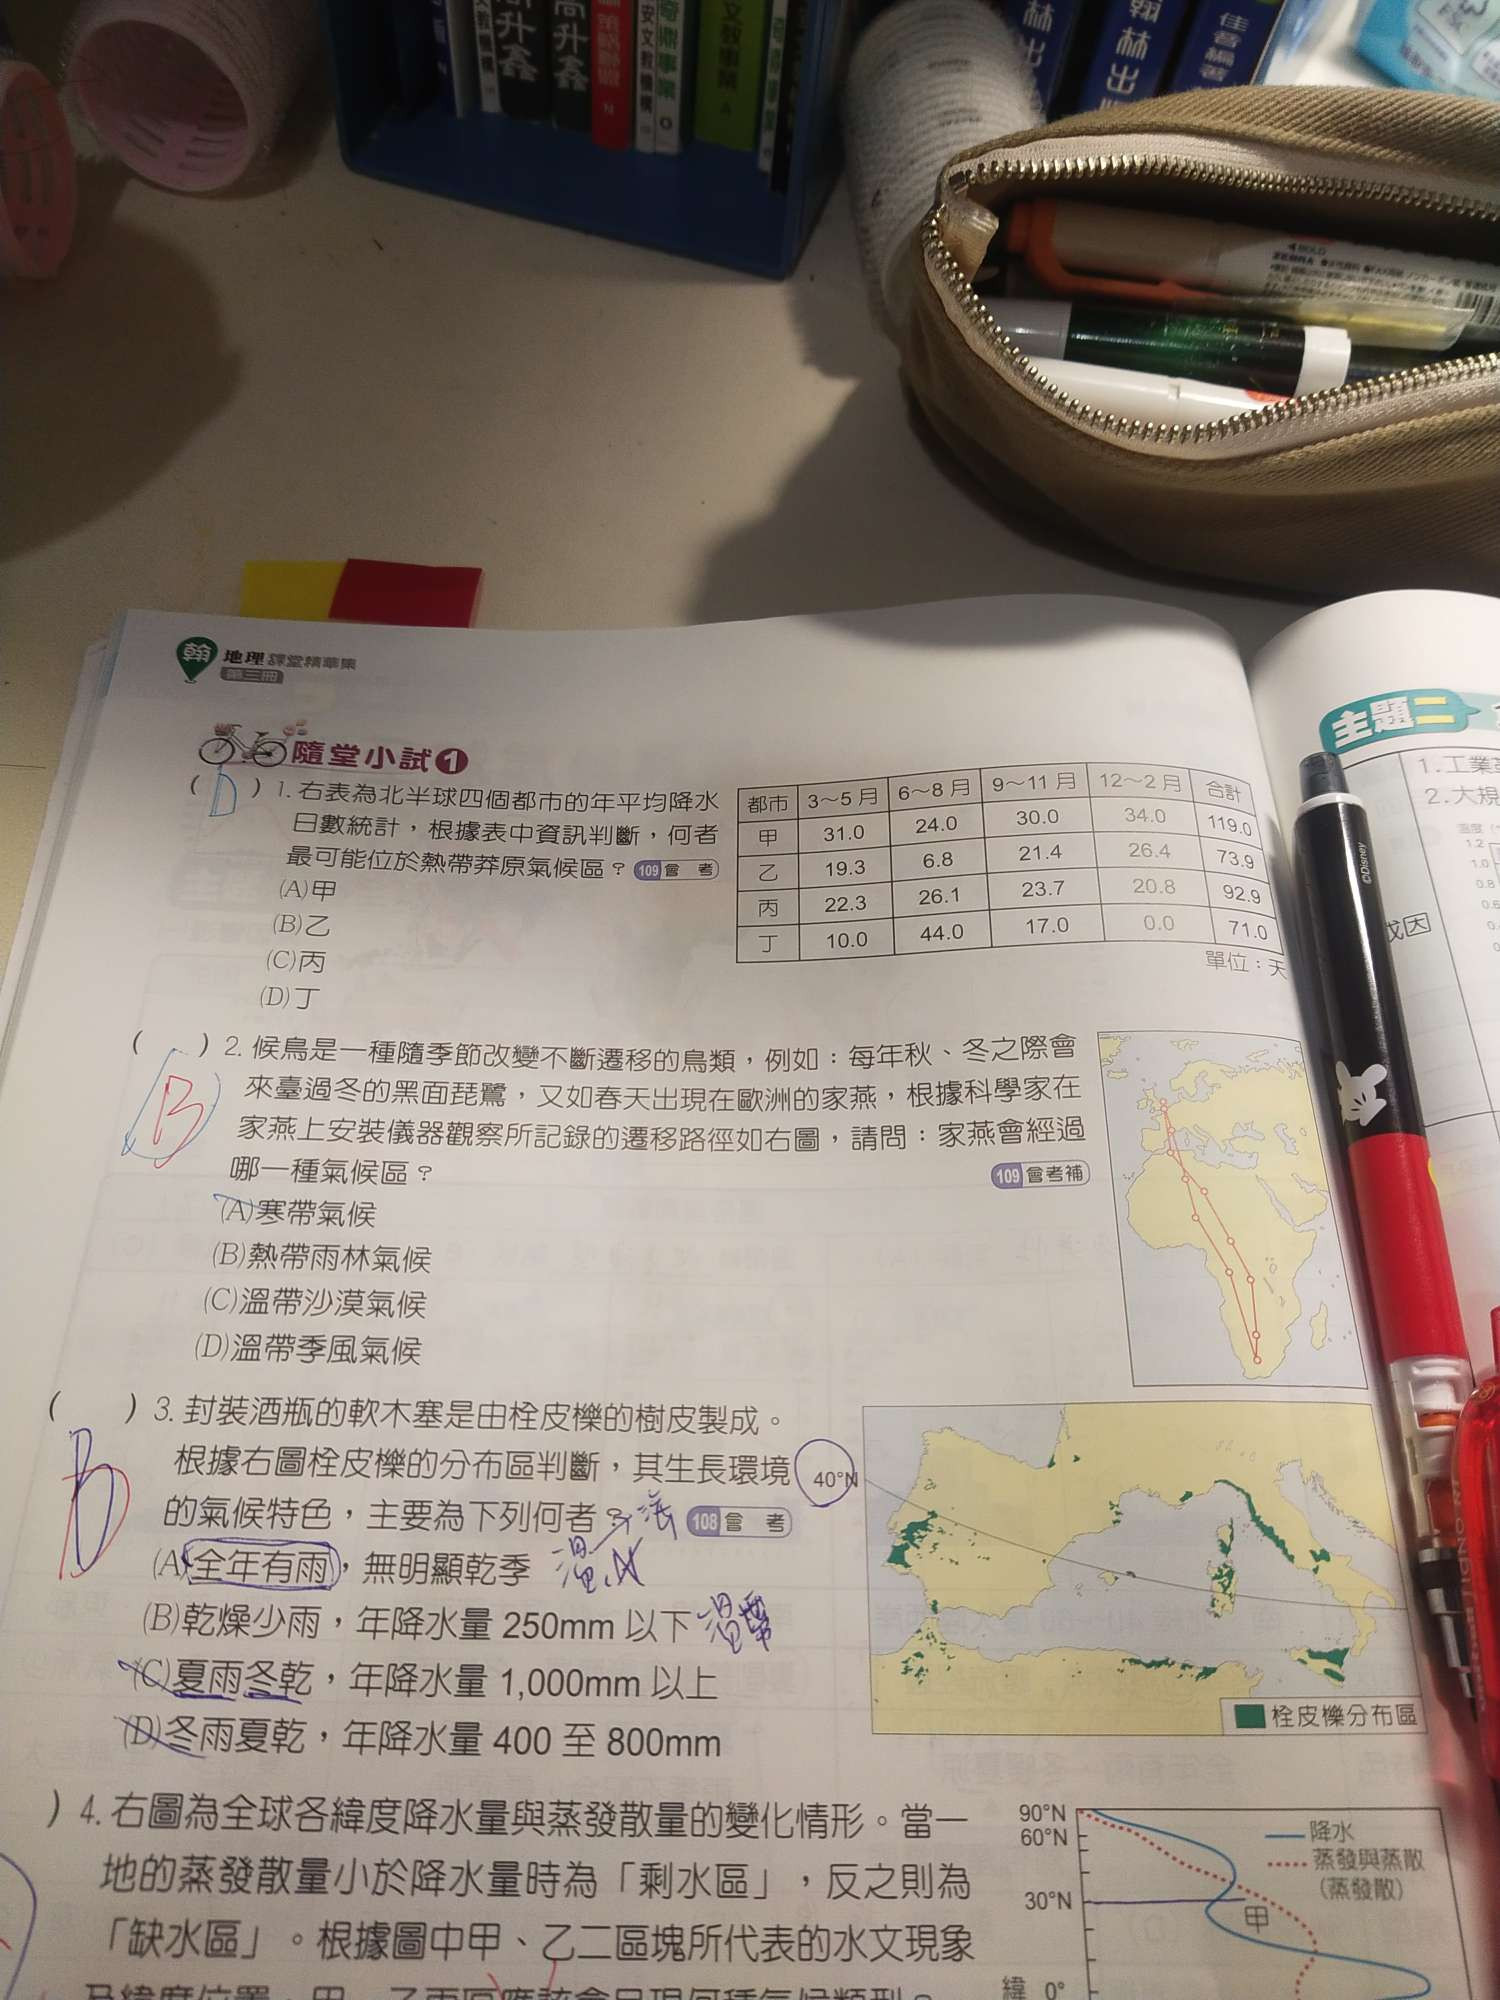 高升鑫
翰林出
林出
佳音編著
BOLD
©Disney
翰
地理 課堂精華集
第三冊
隨堂小試1
( D ) 1. 右表為北半球四個都市的年平均降水
日數統計，根據表中資訊判斷，何者
最可能位於熱帶莽原氣候區？ 109 會 考
(A)甲
(B)乙
(C)丙
(D)丁
都市 3～5月 6～8月 9～11月 12～2月 合計
甲 31.0 24.0 30.0 34.0 119.0
乙 19.3 6.8 21.4 26.4 73.9
丙 22.3 26.1 23.7 20.8 92.9
丁 10.0 44.0 17.0 0.0 71.0
單位：天
( ) 2. 候鳥是一種隨季節改變不斷遷移的鳥類，例如：每年秋、冬之際會
B
來臺過冬的黑面琵鷺，又如春天出現在歐洲的家燕，根據科學家在
家燕上安裝儀器觀察所記錄的遷移路徑如右圖，請問：家燕會經過
哪一種氣候區？ 109 會考補
(A)寒帶氣候
(B)熱帶雨林氣候
(C)溫帶沙漠氣候
(D)溫帶季風氣候
( ) 3. 封裝酒瓶的軟木塞是由栓皮櫟的樹皮製成。
B
根據右圖栓皮櫟的分布區判斷，其生長環境
的氣候特色，主要為下列何者？ 108 會 考
(A)全年有雨，無明顯乾季
(B)乾燥少雨，年降水量 250mm 以下
(C)夏雨冬乾，年降水量 1,000mm 以上
(D)冬雨夏乾，年降水量 400 至 800mm
40°N
栓皮櫟分布區
) 4. 右圖為全球各緯度降水量與蒸發散量的變化情形。當一
地的蒸發散量小於降水量時為「剩水區」，反之則為
「缺水區」。根據圖中甲、乙二區塊所代表的水文現象
及緯度位置，甲、乙兩區應該會呈現何種氣候類型？
90°N
60°N
30°N
緯 0°
降水
蒸發與蒸散
（蒸發散）
甲
主題二
1.工業革
2.大規
1.2
1.0
0.8
成因